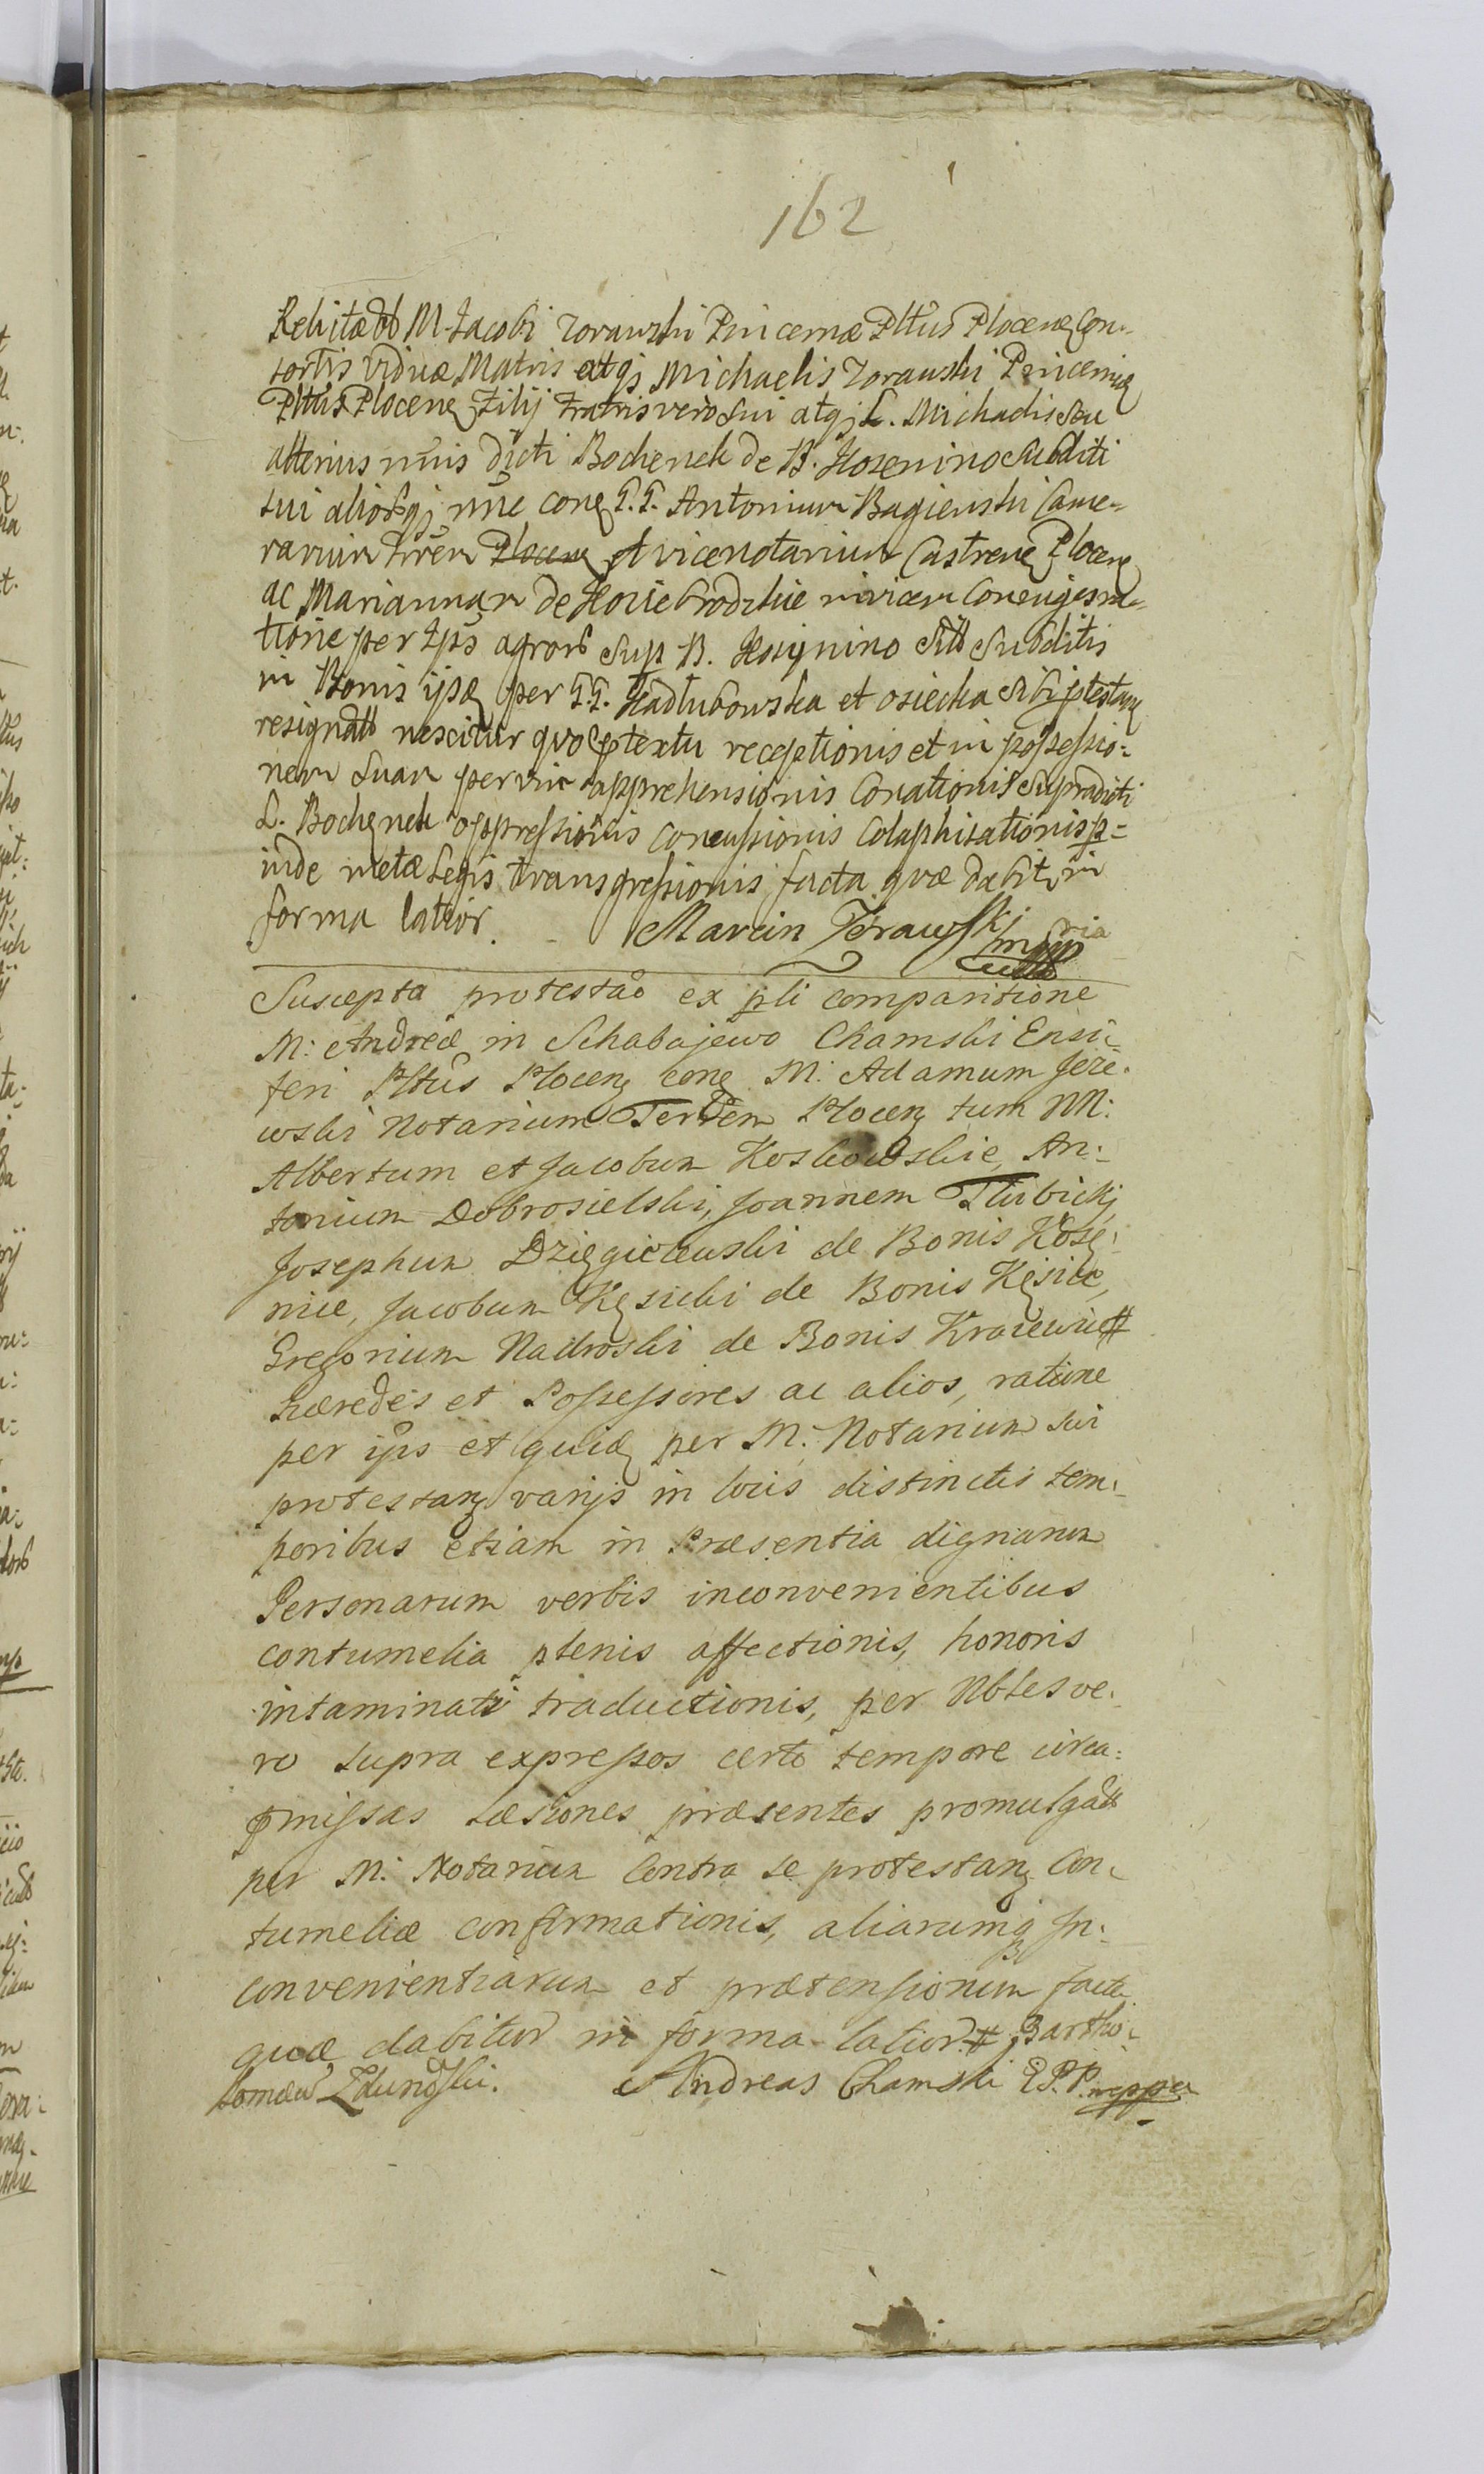 162
Relictæ M. Jacobi Zorawski Pincernæ Pltus Plocenę Con-
sortis viduæ Matris atqȝ Michaelis Zorawski Pincernię
Pltus Plocenę Filij Fratris vero sui atqȝ L. Michaelis seu
alterius nnis dicti Bochenek de B. Kosenino Subditi
sui aliorqȝ nne conę G.G. Antonium Bagienski Came-
rarium Trren Plocenę et vicenotarium Castrenę Plocenę
ac Mariannam de Hovie Grodzkie invicem Coniuges ra-
tione per Ips agrorb Sup B. Kosynino Subditis
in Bonis ipsę per G.G. Kadlubowska et osiecka sibi ptestanę
resignatt nescitur quo ptextu receptionis et in possessio-
nem Suam per vim apprehensionis Conationis Supradicti
L. Bochenek oppressionis concussionis Colaphisationis p-
inde metæ Legis transgressionis facta quæ dabitr in
forma latior. Marcin Żórawski mp
Suscepta protestao ex pli comparitione
M: Andreæ in Schabajewo Chamski Ensi-
feri Pltus Plocenę conę M: Adamum Jeże-
wski Notarium Terren Plocenę tum NN:
Albertum et Jacobum Koskowskie, An-
tonium Dobrosielski, Joannem Tłubicki,
Josephum Dzięgielewski de Bonis Kosę-
nice, Jacobum Kęsicki de Bonis Kęsice,
Gregorium Nadroski de Bonis Krajewice #
Hæredes et Possessores ac alios, ratione
per ips et quidę per M: Notarium sui
protestanę varijs in locis distinctis tem-
poribus etiam in Præsentia dignarum
Personarum verbis inconvenientibus
contumelia plenis affectionis, honoris
intaminati traductionis, per Nbles ve-
ro supra expressos certo tempore circa
pmissas Læsiones præsentes promulgatt
per M: Notarium Contra se protestanę Con-
tumeliæ confirmationis, aliarumqȝ In-
convenientiarum et prætensionum facta
quæ dabitur in forma latior. # Bartho-
lomæus Zdunoski. Andreas Chamski E.P.P. mppa